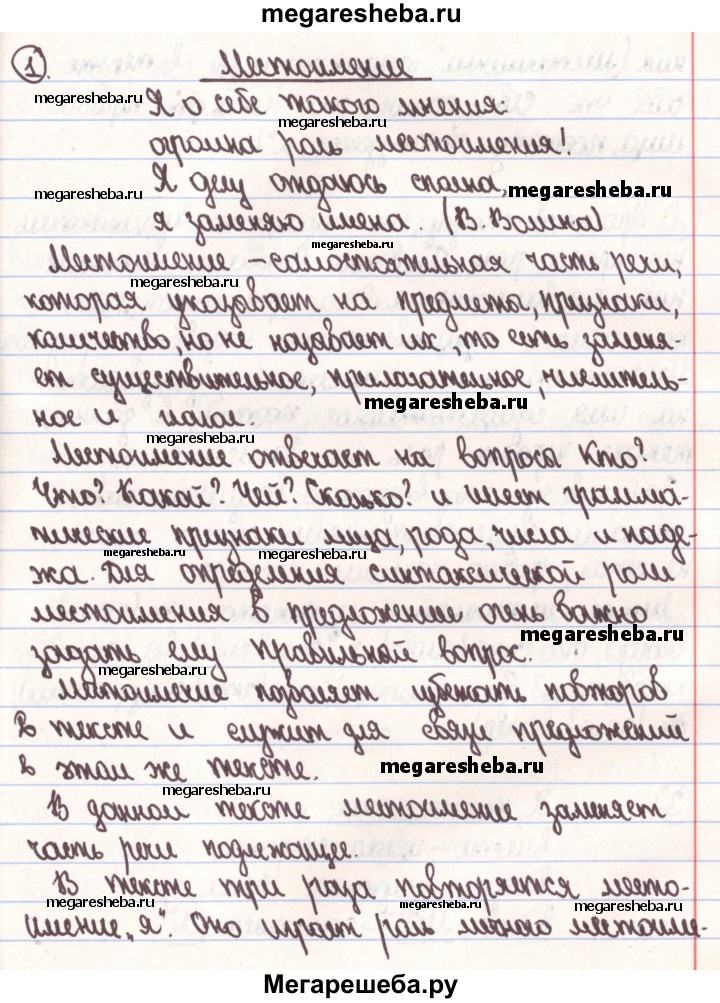 megaresheba.ru
1. Местоимение
megaresheba.ru
Я о себе такого мнения:
megaresheba.ru
огромна роль местоимения!
megaresheba.ru
Я делу отдаюсь сполна,
megaresheba.ru
я заменяю имена. (В. Волина)
megaresheba.ru
Местоимение – самостоятельная часть речи,
которая указывает на предметы, признаки,
количество, но не называет их, то есть заменя-
ет существительное, прилагательное, числитель-
megaresheba.ru
ное и
megaresheba.ru
Местоимение отвечает на вопросы Кто?
Что? Какой? Чей? Сколько? и имеет грамма-
тические признаки лица, рода, числа и паде-
megaresheba.ru
megaresheba.ru
жа. Для определения синтаксической роли
местоимения в предложении очень важно
megaresheba.ru
задать ему правильной вопрос.
megaresheba.ru
Местоимение позволяет избежать повторов
в тексте и служит для связи предложений
в этом же тексте.
megaresheba.ru
megaresheba.ru
В данном тексте местоимение заменяет
часть речи подлежащее.
В тексте три раза повторяется место-
megaresheba.ru
megaresheba.ru
имение „я". Оно играет роль личного местоиме-
Мегарешеба.ру